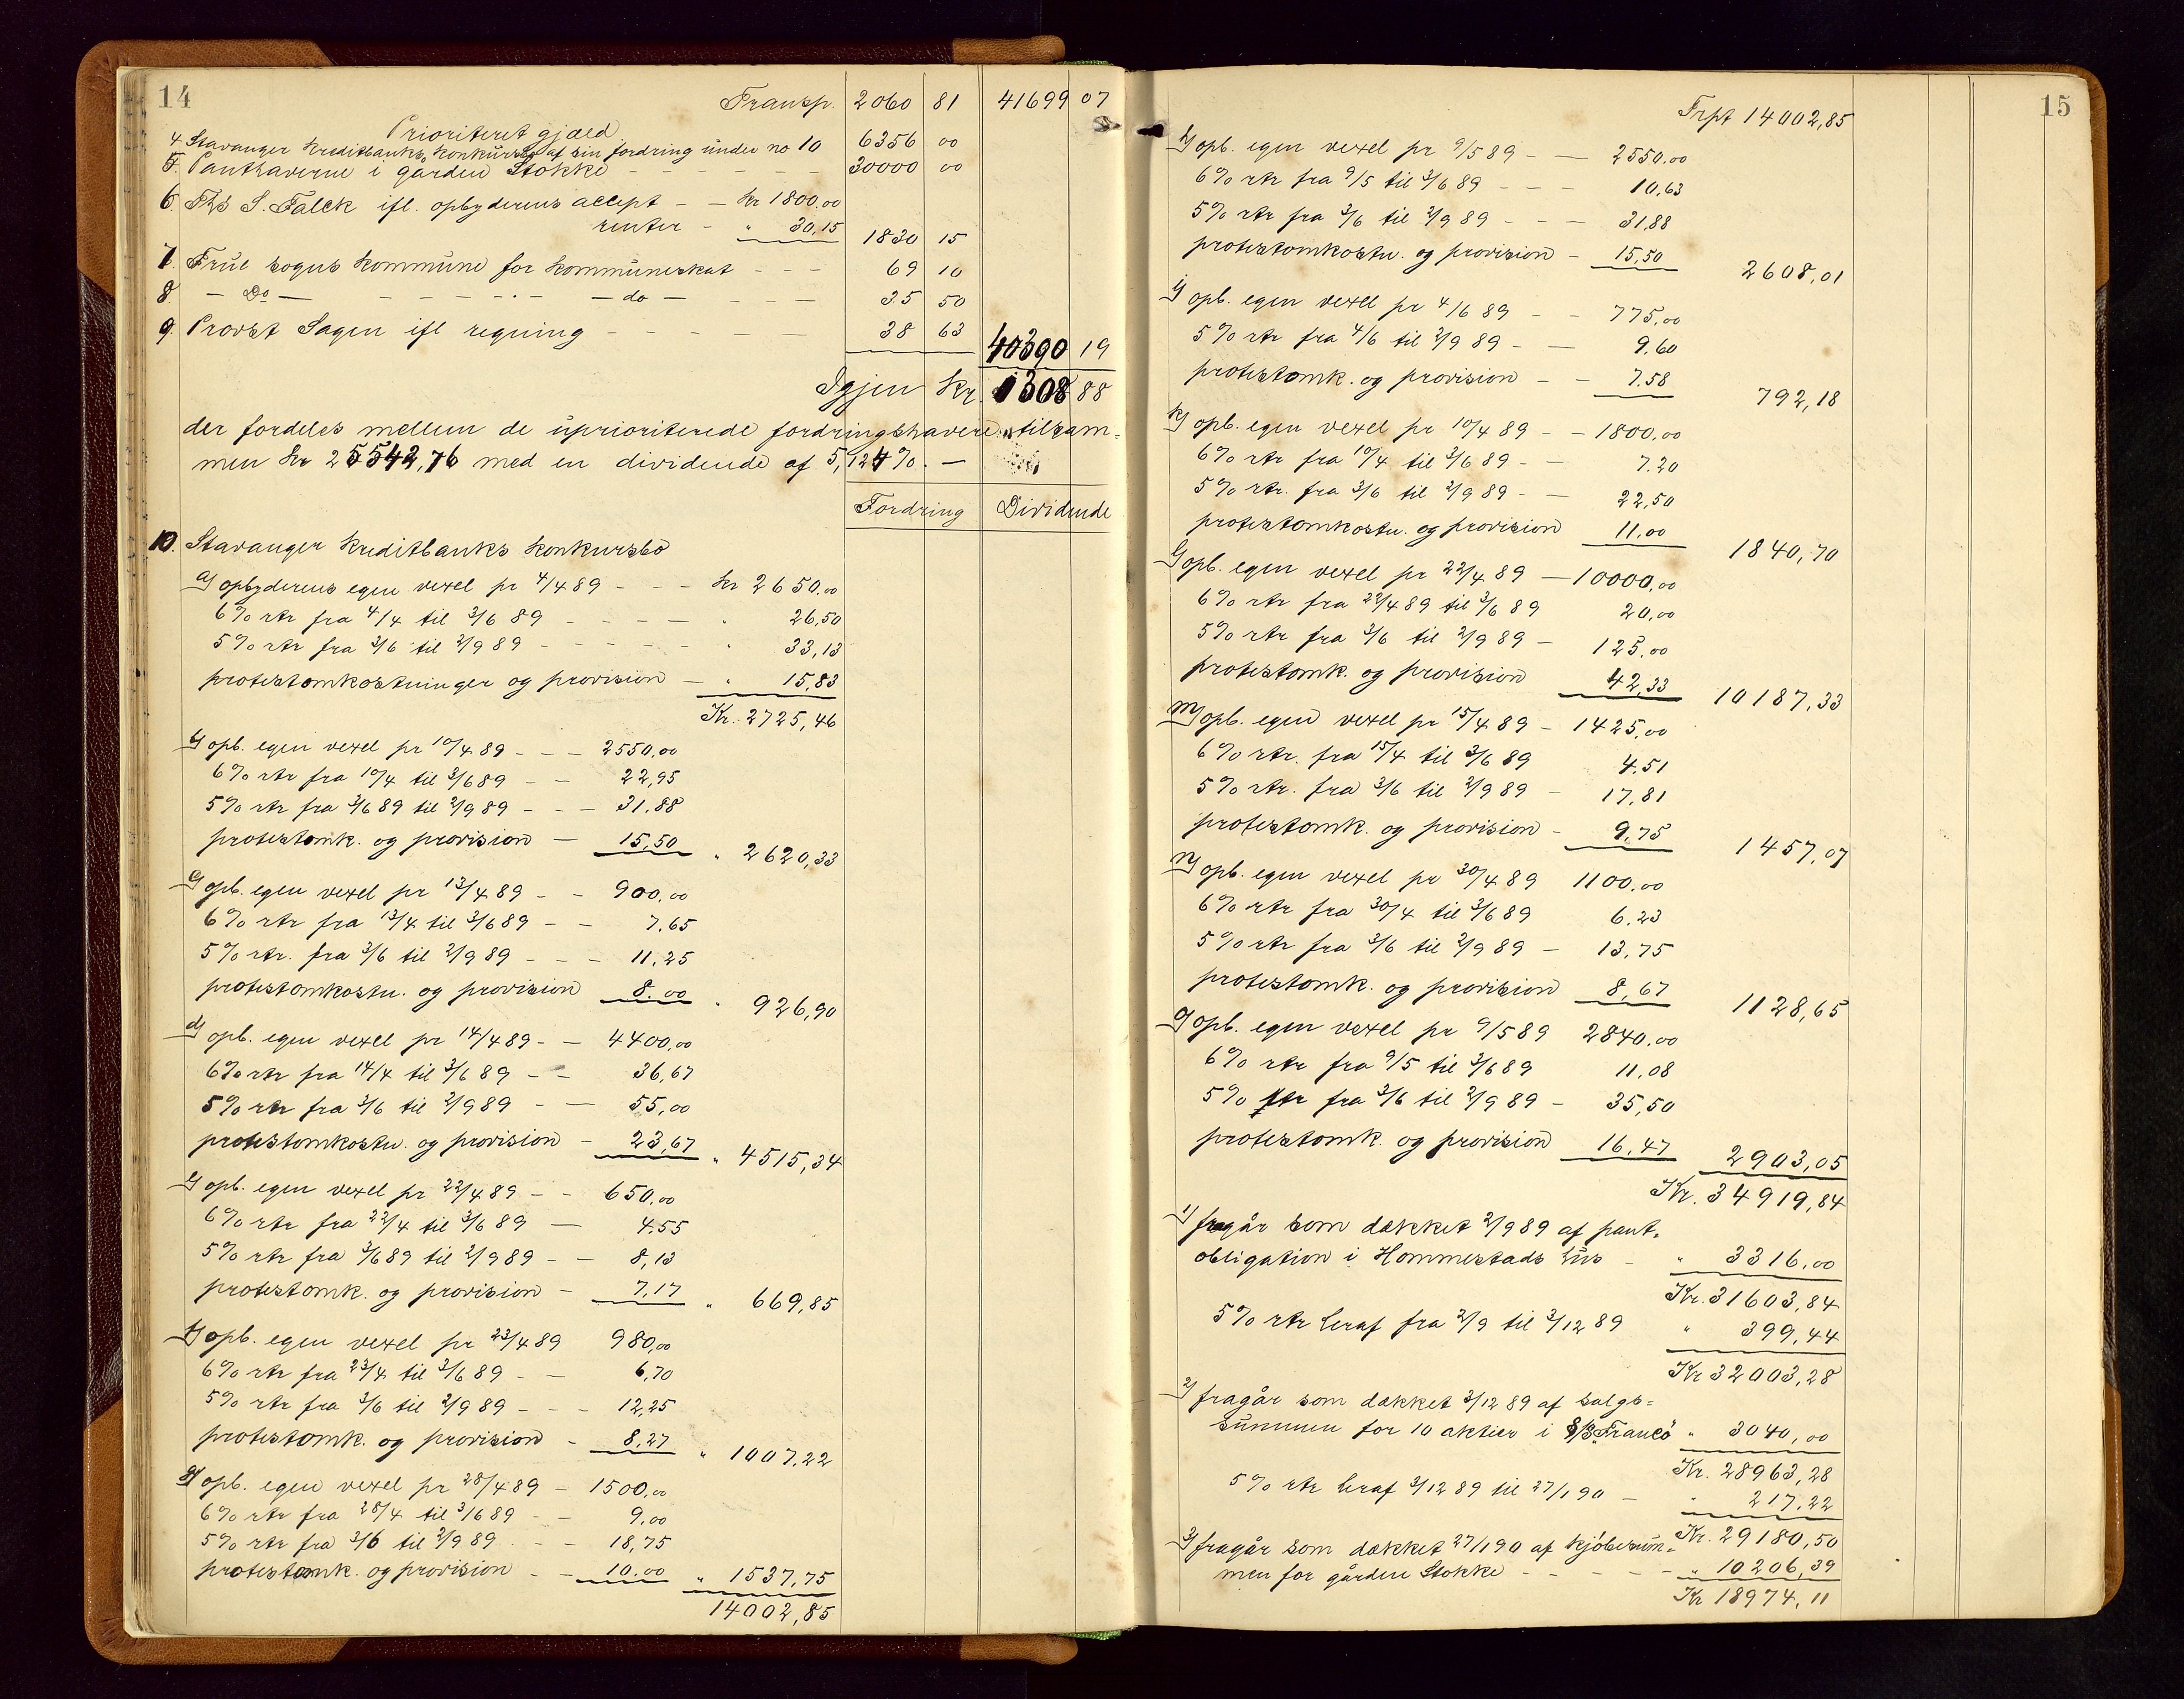 14
Transp. 2060 81 41699 07
Prioriteret gjæld
4 Stavanger Kreditbanks konkursbo af sin fordring under no 10 6356 00
5. Panthaverne i gården Stokke - - - - - - 30000 00
6. Ths S. Falck ifl. opbyderens accept - - Kr 1800.00
renter - " 30,15 1830 15
7. Frue sogns kommune for kommuneskat - - - 69 10
8. - Do - - - - - - - do - - - - 35 50
9. Provst Sagen ifl regning - - - - - - 38 63
40390 19
Igjen Kr. 1308 88
der fordeles mellem de uprioriterede fordringshavere, tilsam=
men Kr 25542,76 med en dividende af 5,124%. -
Fordring Dividende
10. Stavanger Kreditbanks konkursbo
a) opbyderens egen vexel pr 4/4 89 - - - Kr 2650.00
6% rtr fra 4/4 til 3/6 89 - - - - - " 26,50
5% rtr fra 3/6 til 2/9 89 - - - - - " 33,13
protestomkostninger og provision - " 15,83
Kr. 2725,46
b) opb. egen vexel pr 10/4 89 - - - 2550.00
6% rtr fra 10/4 til 3/6 89 - - 22,95
5% rtr fra 3/6 89 til 2/9 89 - - - 31.88
protestomk. og provision - 15,50 " 2620,33
c) opb. egen vexel pr 13/4 89 - - 900,00
6% rtr fra 13/4 til 3/6 89 - - 7.65
5% rtr. fra 3/6 til 2/9 89 - - - 11,25
protestomkostn. og provision 8.00 " 926,90
d) opb. egen vexel pr 14/4 89 - - 4400,00
6% rtr fra 14/4 til 3/6 89 - - 36,67
5% rtr fra 3/6 til 2/9 89 - - 55,00
protestomkostn. og provision - 23,67 " 4515,34
e) opb. egen vexel pr 22/4 89 - - 650.00
6% rtr fra 22/4 til 3/6 89 - 4.55
5% rtr fra 3/6 89 til 2/9 89 - - 8,13
protestomk. og provision - 7,17 " 669,85
f) opb. egen vexel pr 23/4 89 980,00
6% rtr fra 23/4 til 3/6 89 - - 6,70
5% rtr fra 3/6 til 2/9 89 - - - 12,25
protestomk. og provision - 8,27 " 1007.22
g) opb. egen vexel pr 28/4 89 - 1500,00
6% rtr fra 28/4 til 3/6 89 - - 9.00
5% rtr fra 3/6 til 2/9 89 - - 18,75
protestomk. og provision - - 10.00 " 1537,75
14002,85
15
Trpt 14002,85
h) opb. egen vexel pr 9/5 89 - - 2550.00
6% rtr fra 9/5 til 3/6 89 - - - 10,63
5% rtr fra 3/6 til 2/9 89 - - - 31,88
protestomkostn. og provision - 15,50 2608,01
i) opb. egen vexel pr 4/6 89 - - 775,00
5% rtr fra 4/6 til 2/9 89 - - 9.60
protestomk. og provision - - 7.58 792,18
k) opb. egen vexel pr 10/4 89 - - 1800,00
6% rtr fra 10/4 til 3/6 89 - - 7.20
5% rtr. fra 3/6 til 2/9 89 - - 22,50
protestomkostn. og provision 11.00 1840,70
l) opb. egen vexel pr 22/4 89 - 10000,00
6% rtr fra 22/4 89 til 3/6 89 20,00
5% rtr fra 3/6 til 2/9 89 - 125.00
protestomk. og provision 42,33 10187,33
m) opb. egen vexel pr 15/4 89 - 1425.00
6% rtr. fra 15/4 til 3/6 89 4.51
5% rtr. fra 3/6 til 2/9 89 - 17,81
protestomk. og provision - 9,75 1457,07
n) opb. egen vexel pr 30/4 89 1100.00
6% rtr fra 30/4 til 3/6 89 6.23
5% rtr fra 3/6 til 2/9 89 - 13,75
protestomk. og provision 8,67 1128,65
o) opb. egen vexel pr 9/5 89 2840.00
6% rtr fra 9/5 til 3/6 89 11.08
5% rtr fra 3/6 til 2/9 89 - 35,50
protestomk. og provision 16,47 2903,05
Kr. 34919,84
1) fragår som dækket 2/9 89 af pant=
obligation i Hommestads hus - " 3316,00
Kr. 31603,84
5% rtr heraf fra 2/9 til 2/12 89 " 399,44
Kr 32003,28
2) fragår som dækket 3/12 89 af salgs=
summen for 10 aktier i S/S "Franco" " 3040,00
Kr. 28963,28
5% rtr heraf 3/12 89 til 27/1 90 - " 217.22
Kr. 29180,50
3) fragår som dækket 27/1 90 af kjøbesum=
men for gården Stokke - - - - - " 10206,39
Kr 18974,11